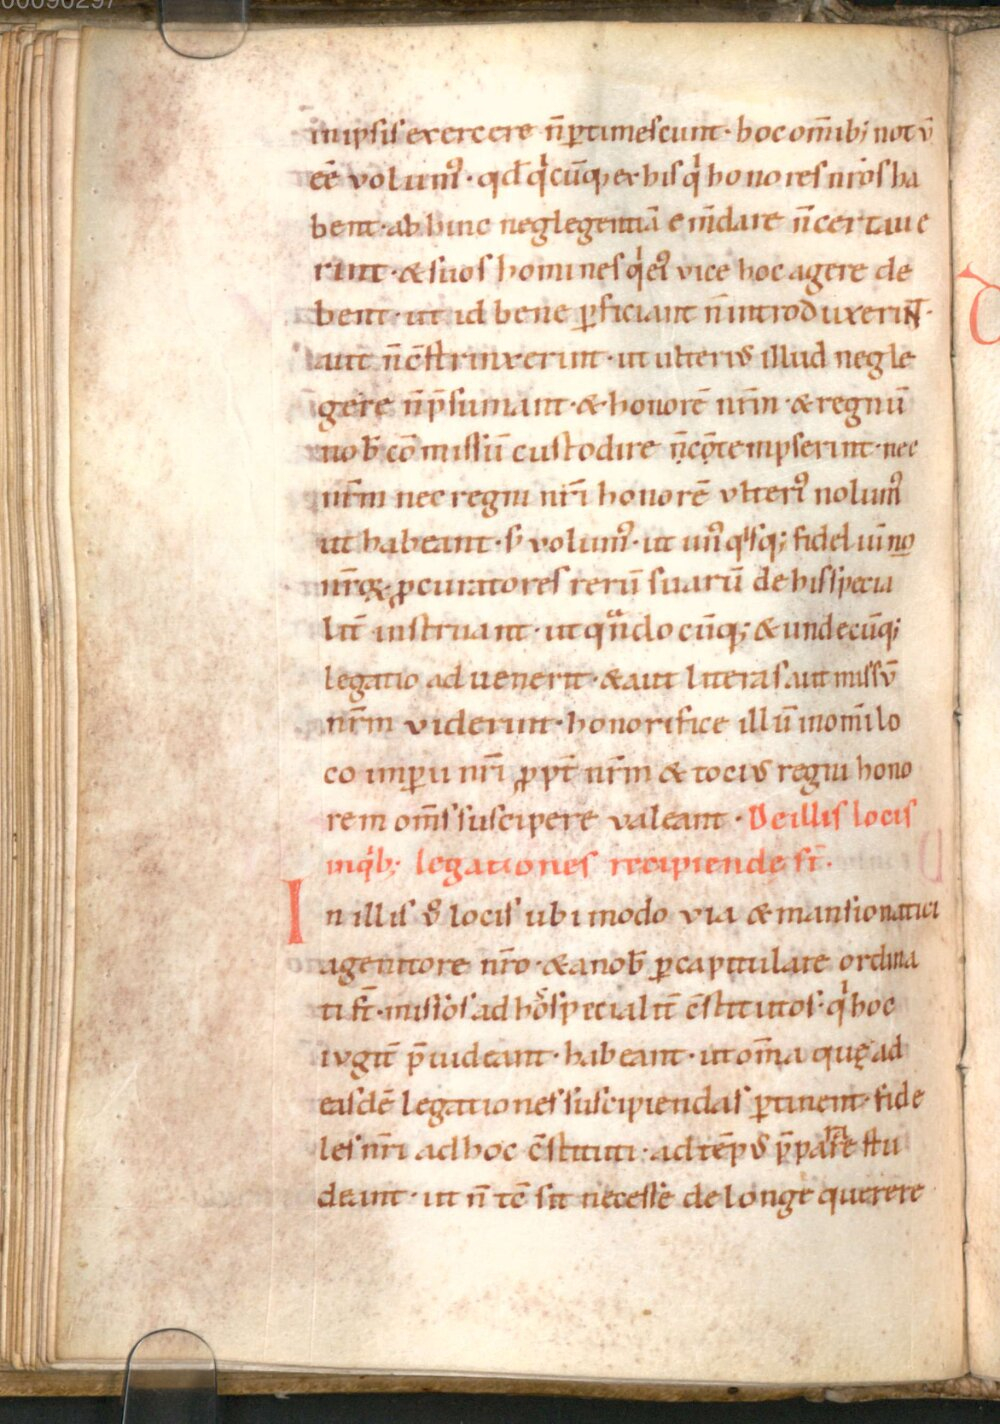 00090297
inipsis exercere n̄ ꝑtimescunt · hoc om̄ib; notū
eē volum᾽ · qd̄ qͥcūq; ex his qͥ honores nr̄os ha
bent · ab hinc neglegentiā em̄dare n̄ certaue
rint · & suos homines qͥ ei᾽ vice hoc agere de
bent · ut id bene ꝑficiant n̄ introduxerint ·
aut n̄ c̄strinxerint · ut ulteri᾽ illud negle
gere n̄ p̄sumant · & honorē nr̄m · & regnū
nob̄ cōmissū custodire n̄ cōtempserint · nec
nr̄m nec regni nr̄i honorē vlteri᾽ nolum᾽
ut habeant · s; volum᾽ · ut un᾽qͥsq; fideliū no
nr̄oꝝ ꝓcuratores rerū suarū de his specia
lit̄ instruant · ut qᵃndocūq; & undecūq;
legatio advenerit · & aut literas aut missū
nr̄m viderint · honorifice illū in om̄i lo
co imꝑii nr̄i ꝓpt̄ nr̄m & toci᾽ regni hono
rem om̄s suscipere valeant · De illis locis
in qͥb; legationes recipiende st̄ ·
In illis v᾽ locis ubi modo via & mansionatici
a genitore nr̄o · & a nob̄ ꝑ capitulare ordina
ti st̄ · missos ad hoc specialit̄ c̄stitutos · qͥ hoc
iugit̄ p̄uideant · habeant · ut om̄a quę ad
easdē legationes suscipiendas ꝑtinent · fide
les nr̄i ad hoc c̄stituti · ad tēp᾽ p̄parare stu
deant · ut n̄ tc̄ sit necesse de longe querere